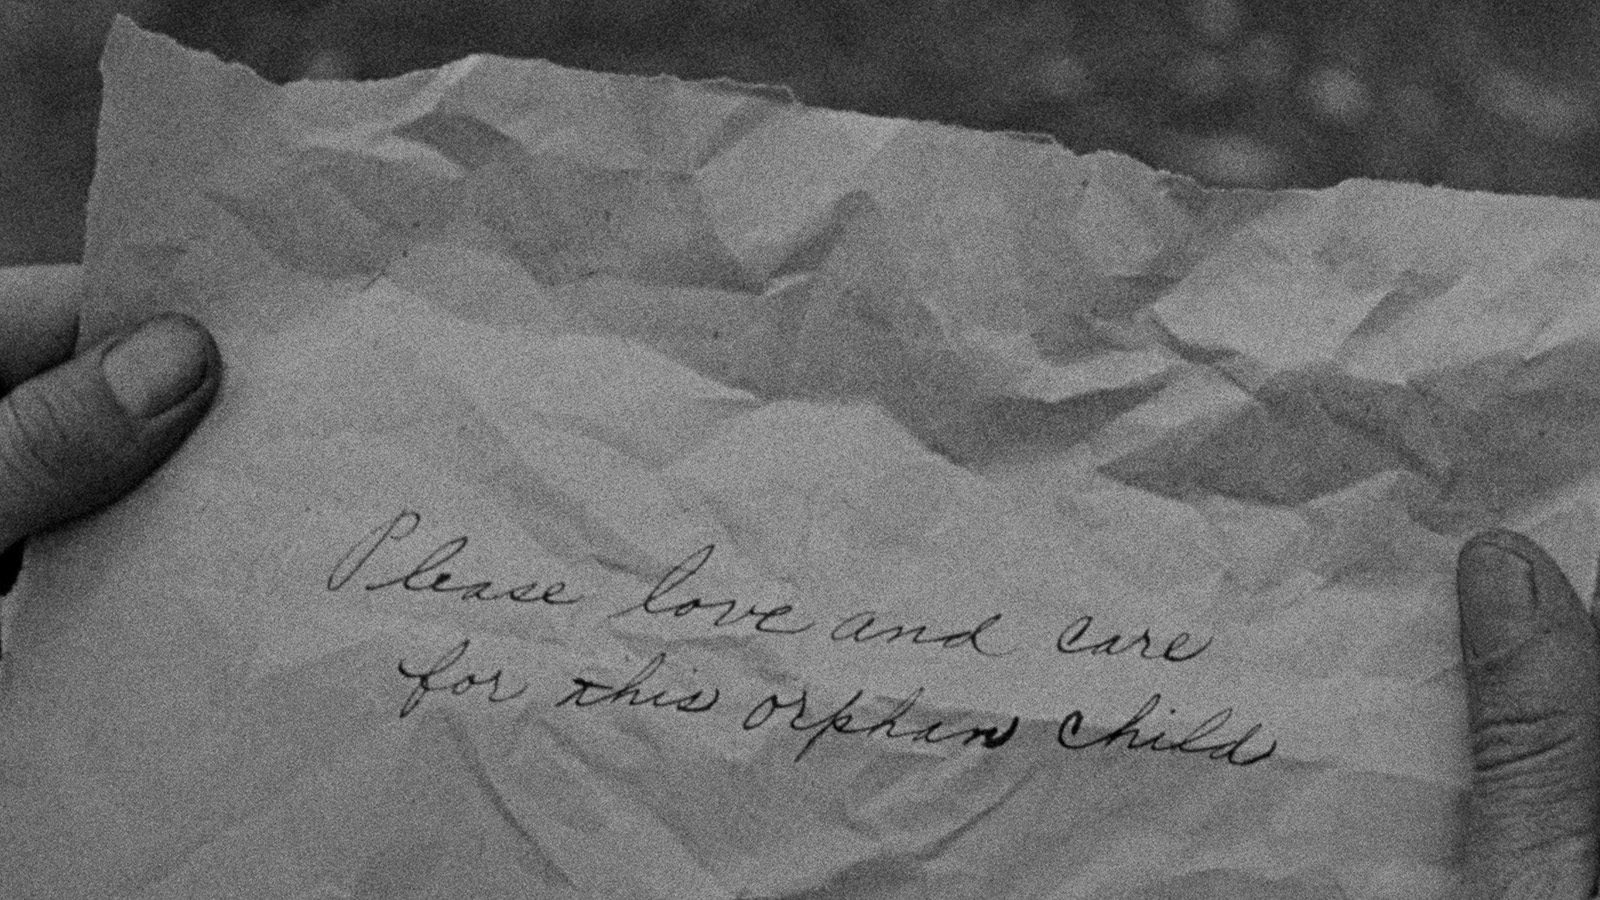 Please love and care
for this orphan child